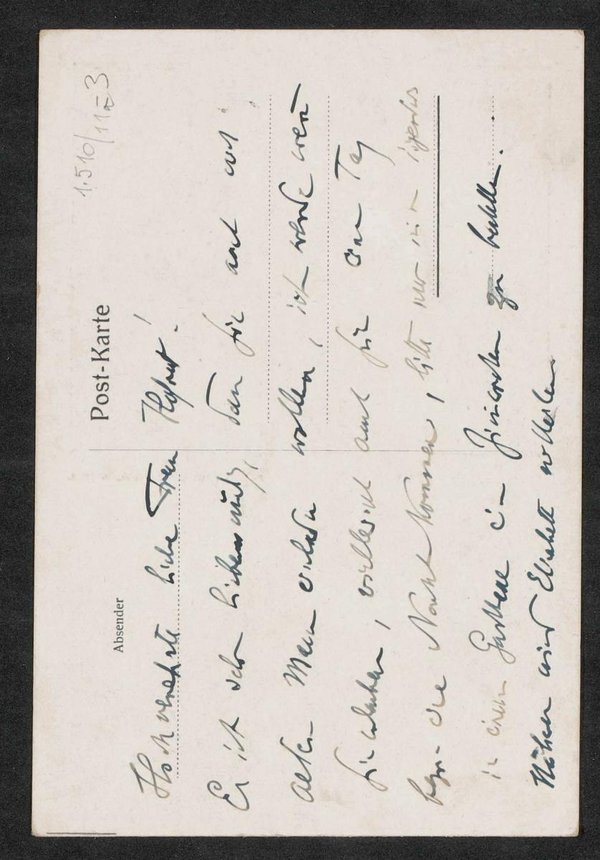 1.510/11-3
Post-Karte
Absender
Hochverehrte liebe Frau Hofrat!
Es ist sehr liebenswürdig, dass Sie auch
alten Mann einladen wollen, ich werde wenn
Sie erlauben, vielleicht auch für einen Tag
bezw. eine Nacht kommen, bitte nur mir irgendwo
in einem Gasthause ein Zimmerchen zu bestellen.
Näheres wird Elisabeth